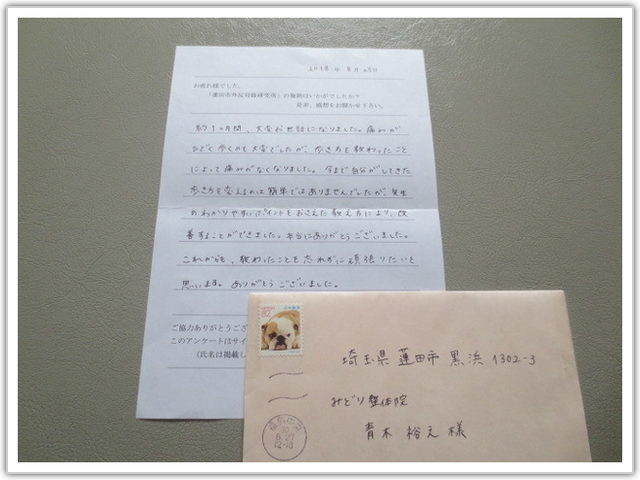 2018年 8月 25日
お疲れ様でした。
「蓮田市外反母趾研究所」の施術はいかがでしたか？
是非、感想をお聞かせ下さい。
約1ヶ月間、大変お世話になりました。痛みが
ひどく歩くのも大変でしたが、歩き方を教わったこと
によって痛みがなくなりました。今まで自分がしてきた
歩き方を変えるのは簡単ではありませんでしたが、先生
のわかりやすいポイントをおさえた教え方によって、改
善することができました。本当にありがとうございました。
これからも、教わったことを忘れずに頑張りたいと
思います。ありがとうございました。
ご協力ありがとうござ
このアンケートはサイ
（氏名は掲載し
82
日本郵便
埼玉県蓮田市黒浜1302-3
みどり整体院
青木 裕之 様
30
12-18